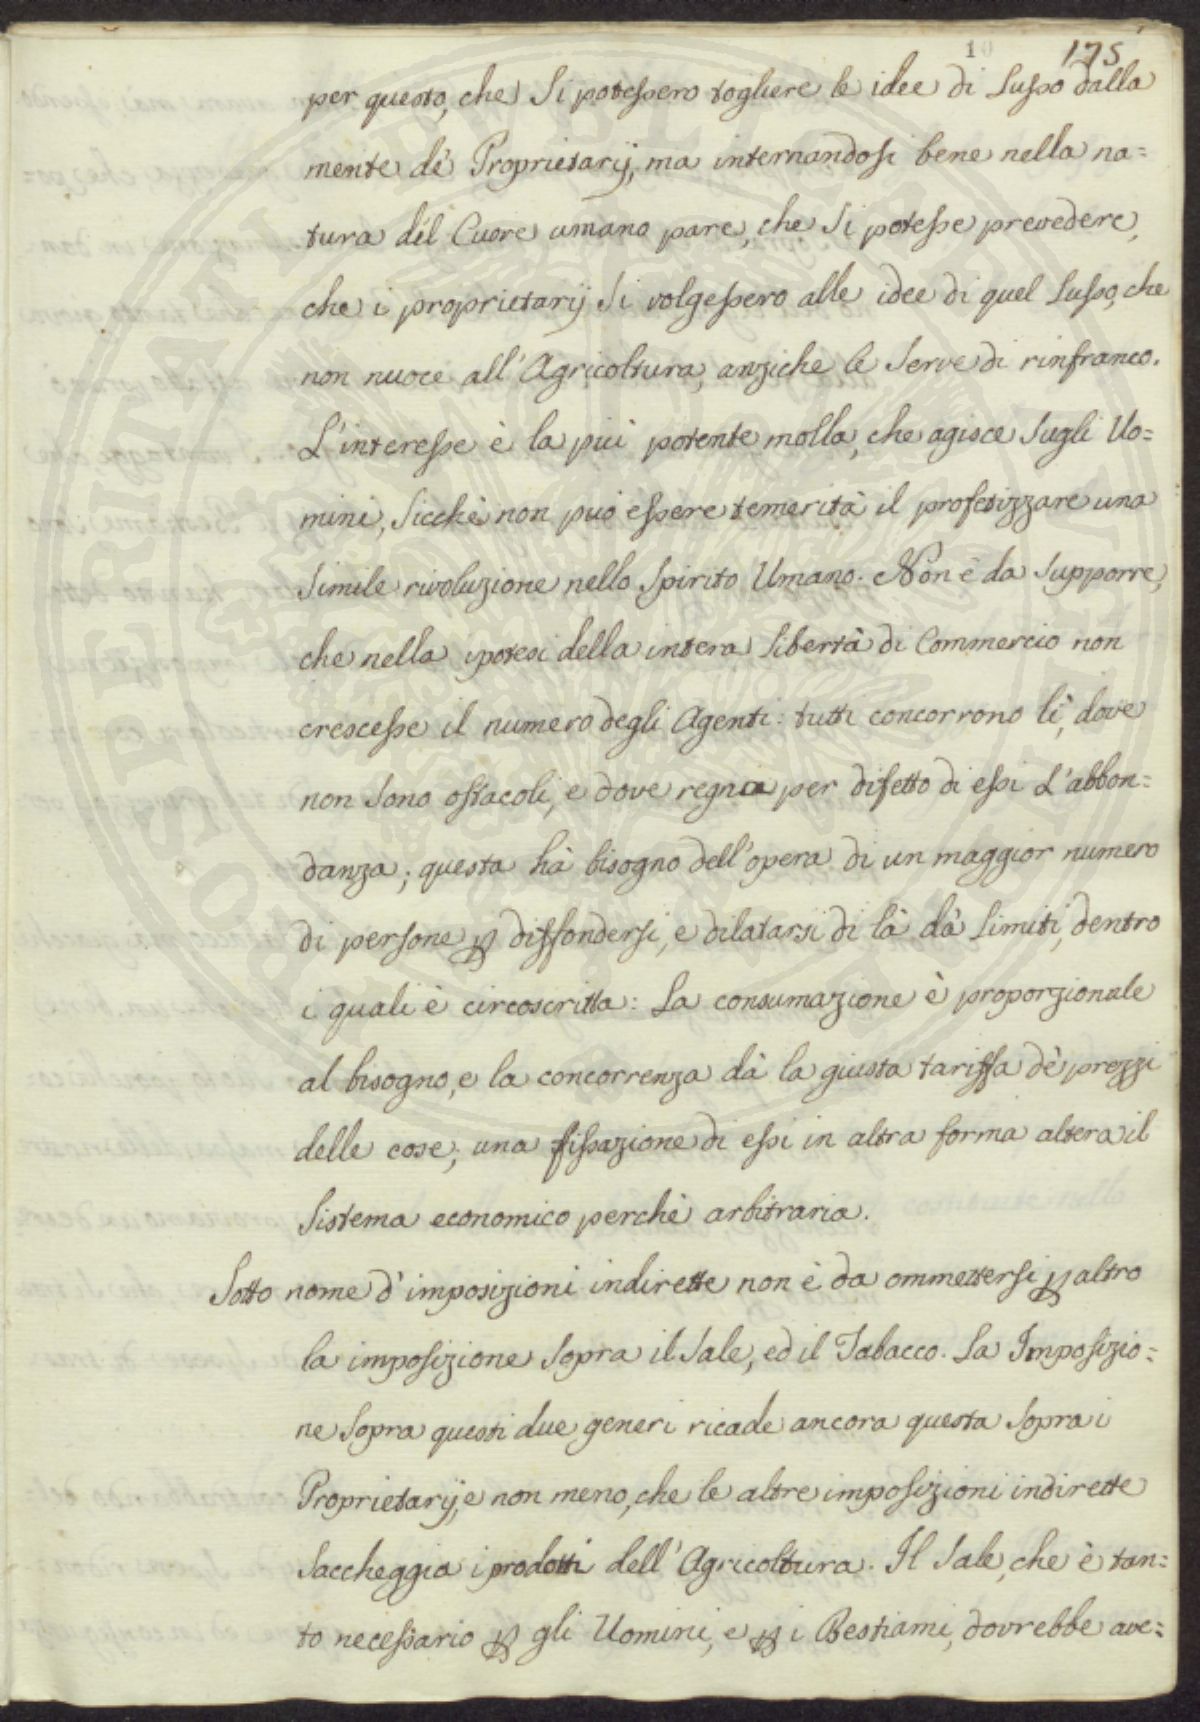 10 175
per questo, che si potessero togliere le idee di Lusso dalla
mente dè Proprietarij, ma internandosi bene nella na=
tura del Cuore umano pare, che si potesse prevedere,
che i proprietarij si volgessero alle idee di quel Lusso, che
non nuoce all'Agricoltura, anziche le serve di rinfranco.
L'interesse è la più potente molla, che agisce sugli Uo=
mini, sicchè non può essere temerità il profetizzare una
simile rivoluzione nello Spirito Umano. Non è da supporre,
che nella ipotesi della intera libertà di Commercio non
crescesse il numero degli Agenti: tutti concorrono lì, dove
non sono ostacoli, e dove regna per difetto di essi L'abbon=
danza; questa hà bisogno dell'opera di un maggior numero
di persone p diffondersi, e dilatarsi di là dà limiti, dentro
i quali è circoscritta: La consumazione è proporzionale
al bisogno, e la concorrenza dà la giusta tariffa dè prezzi
delle cose; una fissazione di essi in altra forma altera il
sistema economico perchè arbitraria.
Sotto nome d'imposizioni indirette non è da ommettersi p altro
la imposizione sopra il Sale, ed il Tabacco. La Imposizio=
ne sopra questi due generi ricade ancora questa sopra i
Proprietarij, e non meno, che le altre imposizioni indirette
saccheggia i prodotti dell'Agricoltura. Il Sale, che è tan=
to necessario p gli Uomini, e p i Bestiami, dovrebbe ave=
PROSPERITATI PUBLICAE